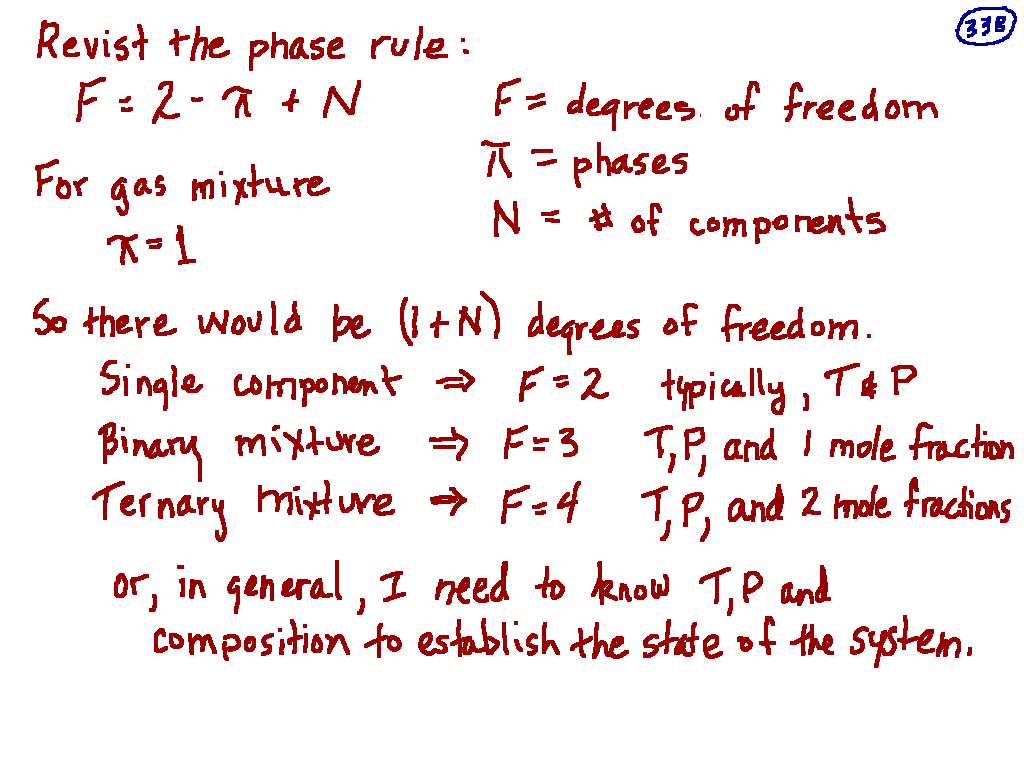 33B
Revist the phase rule:
F = 2 - π + N
F = degrees of freedom
π = phases
N = # of components
For gas mixture
π = 1
So there would be (1 + N) degrees of freedom.
Single component ⇒ F = 2 typically, T & P
Binary mixture ⇒ F = 3 T, P, and 1 mole fraction
Ternary mixture ⇒ F = 4 T, P, and 2 mole fractions
or, in general, I need to know T, P and
composition to establish the state of the system.